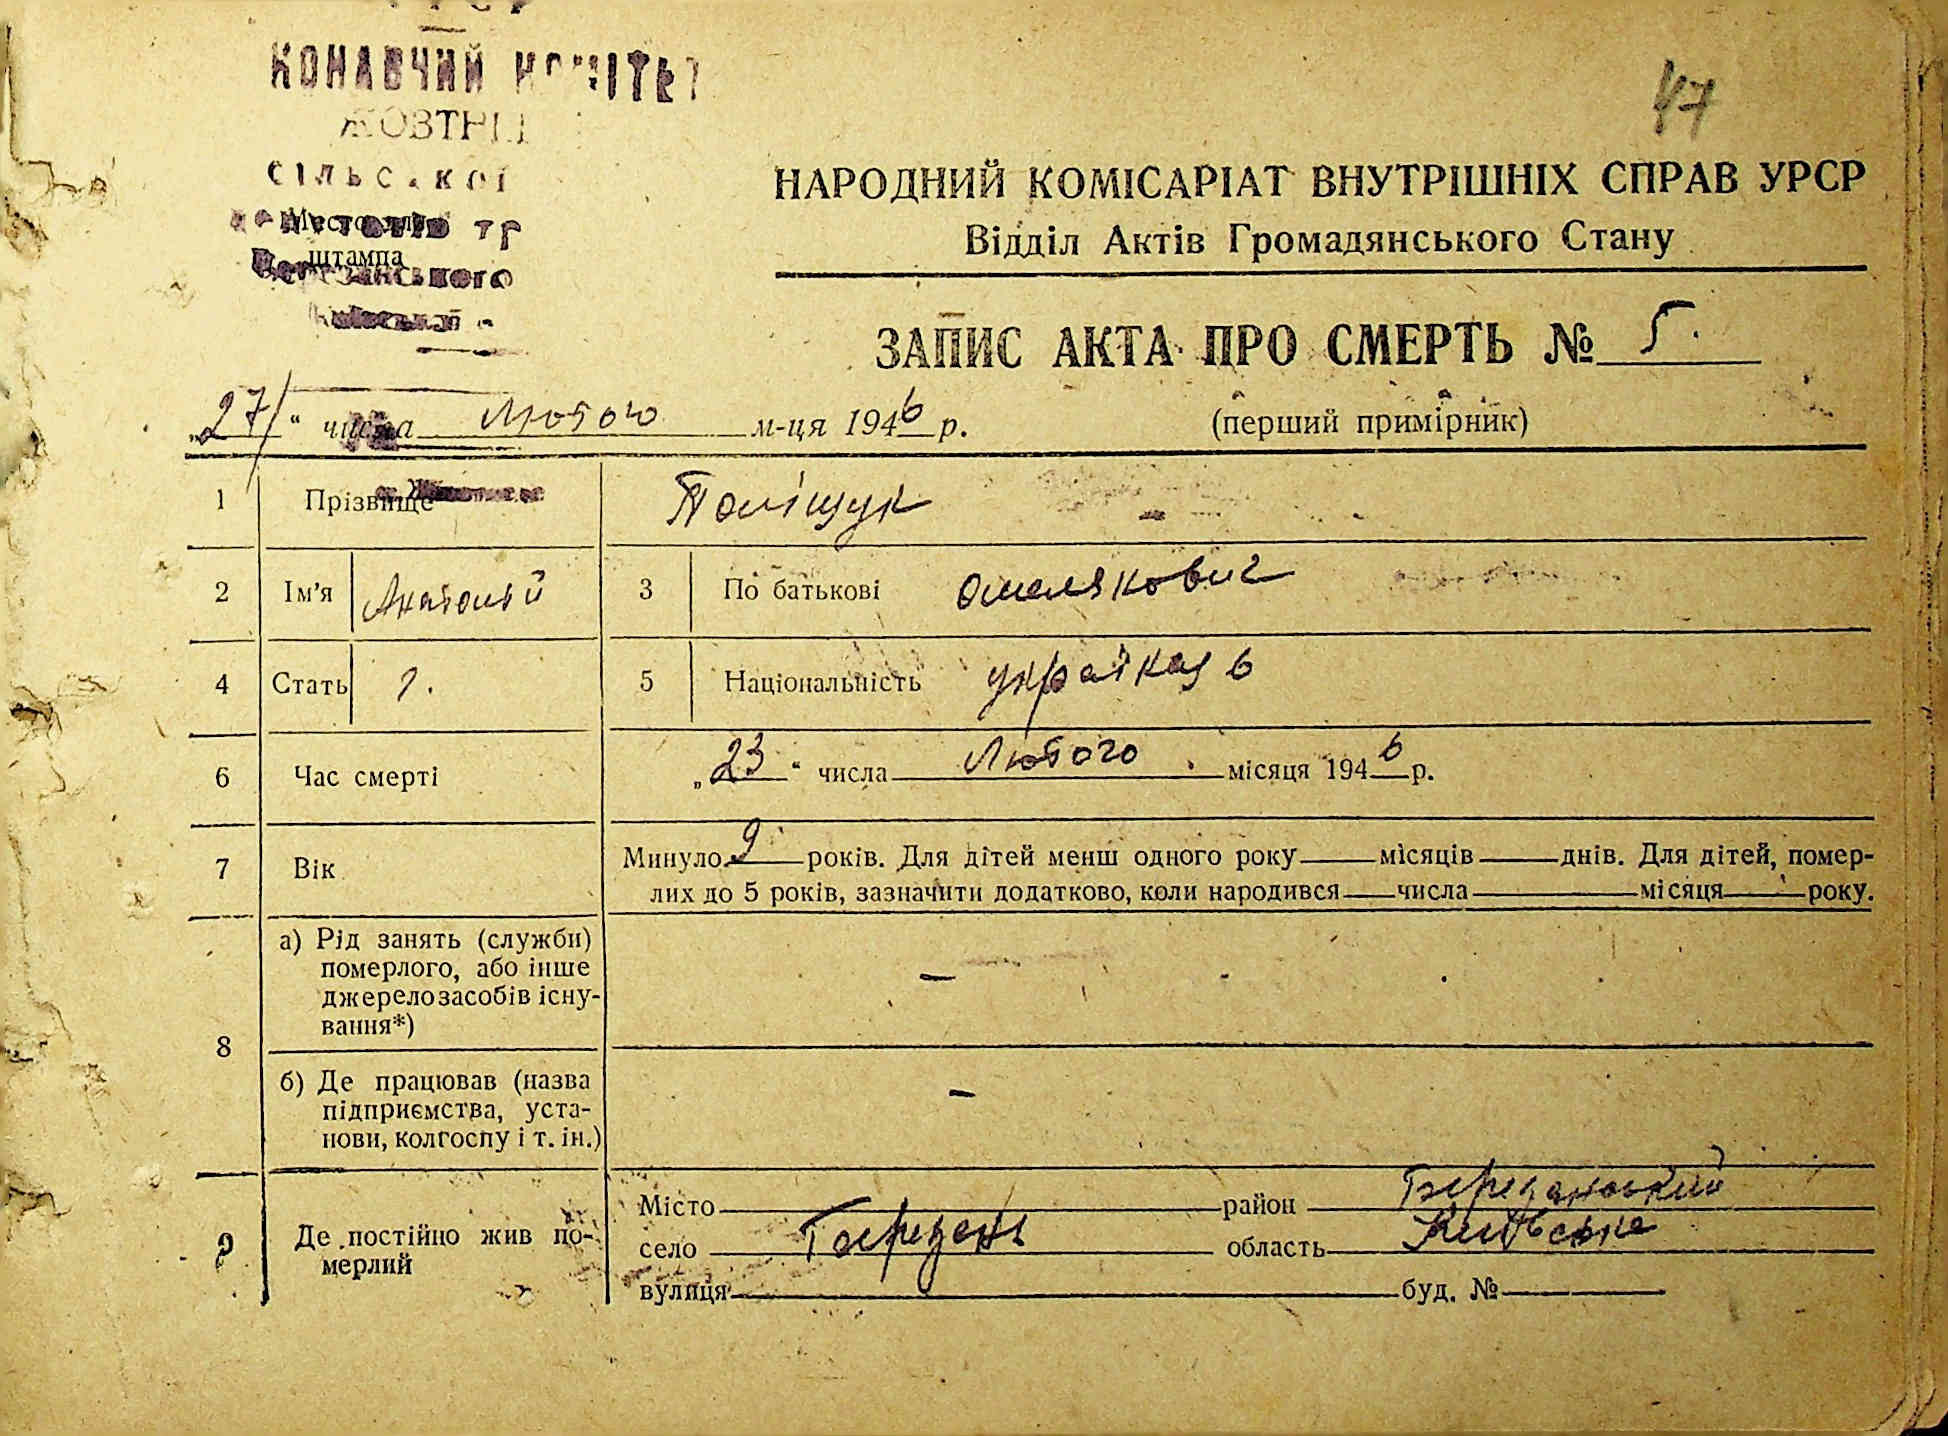 КОНАВЧИЙ КОМІТЕТ
СІЛЬСЬКОЇ
Место для
штампа
47
НАРОДНИЙ КОМІСАРІАТ ВНУТРІШНІХ СПРАВ УРСР
Відділ Актів Громадянського Стану
ЗАПИС АКТА ПРО СМЕРТЬ № 5.
„27" числа Лютого м-ця 1946 р.
(перший примірник)
1 Прізвище Поліщук
2 Ім'я Анатолій 3 По батькові Омелякович
4 Стать ч. 5 Національність
6 Час смерті „23" числа Лютого місяця 1946 р.
7 Вік Минуло 9 років. Для дітей менш одного року місяців днів. Для дітей, помер-
лих до 5 років, зазначити додатково, коли народився числа місяця року.
8 а) Рід занять (служби)
померлого, або інше
джерело засобів існу-
вання*) –
б) Де працював (назва
підприємства, уста-
нови, колгоспу і т. ін.) –
9 Де постійно жив по-
мерлий
Місто район Березанський
село Березань область Київська
вулиця буд. №